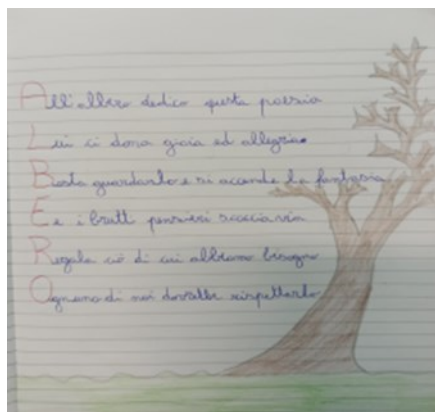 All'albero dedico questa poesia
Lui ci dona gioia ed allegria.
Basta guardarlo e si accende la fantasia
E e i brutti pensieri scaccia via
Regala ciò di cui abbiamo bisogno
Ognuno di noi dovrebbe rispettarlo